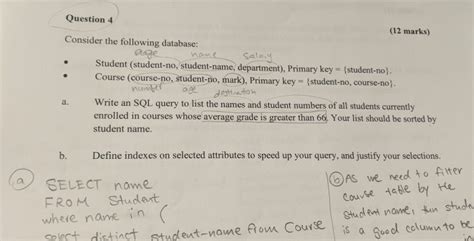 Question 4
(12 marks)
Consider the following database:
age name Salary
• Student (student-no, student-name, department), Primary key = {student-no}.
• Course (course-no, student-no, mark), Primary key = {student-no, course-no}.
number age
a. Write an SQL query to list the names and student numbers of all students currently
enrolled in courses whose average grade is greater than 66. Your list should be sorted by
student name.
b. Define indexes on selected attributes to speed up your query, and justify your selections.
a SELECT name
FROM Student
where name in (
select distinct student-name from Course
b As we need to filter
course table by the
student name, then
is a good column to be